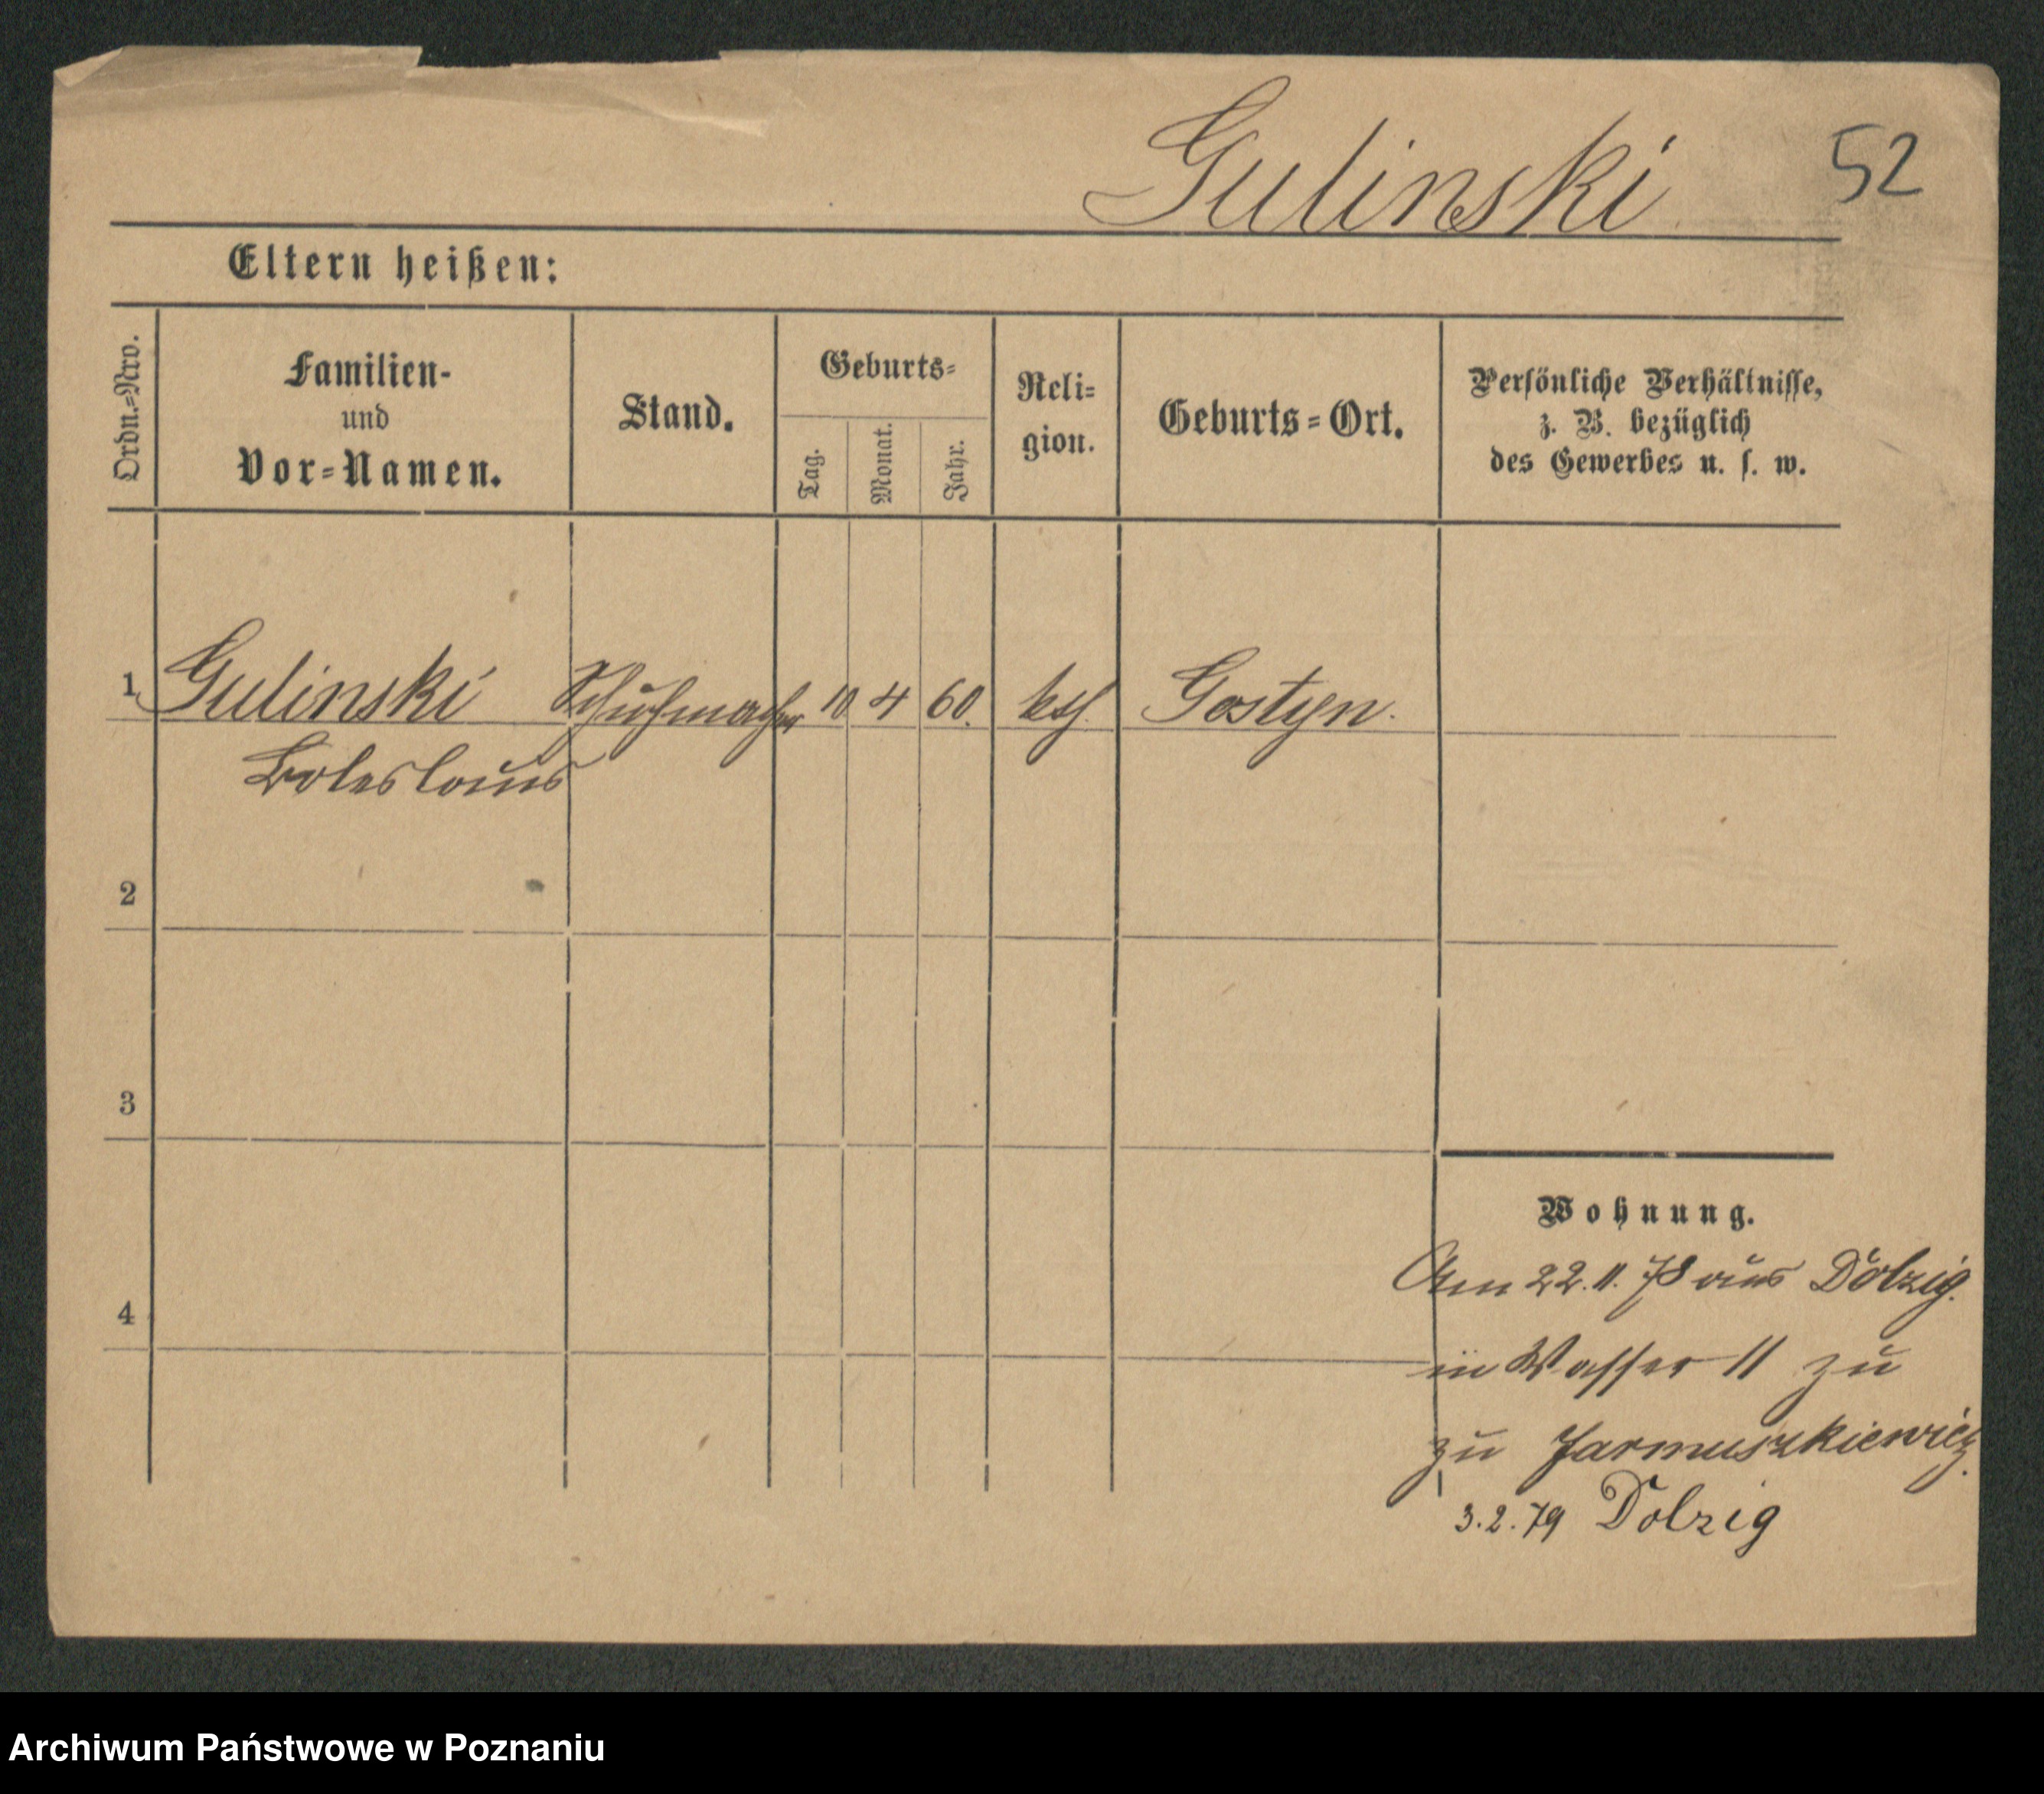 Gulinski 52
Eltern heißen:
Ordn.-Nro.
Familien-
und
Vor-Namen.
Stand.
Geburts-
Tag.
Monat.
Jahr.
Reli-
gion.
Geburts-Ort.
Persönliche Verhältnisse,
z. B. bezüglich
des Gewerbes u. s. w.
1 Gulinski Schuhmacher 10 4 60. kth. Gostyn.
Boleslaus
2
3
4
Wohnung.
Am 22.11.78 aus Dolzig.
in Wasser 11 zu
zu Jarmuszkiewicz.
3.2.79 Dolzig
Archiwum Państwowe w Poznaniu